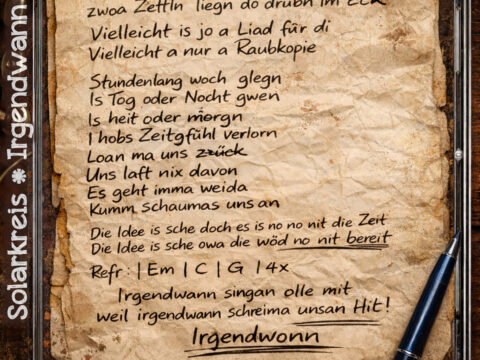 zwoa Zettln liegn do drübn im Eck
Vielleicht is jo a Liad für di
Vielleicht a nur a Raubkopie
Stundenlang woch glegn
Is Tog oder Nocht gwen
Is heit oder morgn
I hobs Zeitgfühl verlorn
Loan ma uns zrück
Uns laft nix davon
Es geht imma weida
Kumm schaumas uns an
Die Idee is sche doch es is no no nit die Zeit
Die Idee is sche owa die wöd no nit bereit
Refr: | Em | C | G | 4x
Irgendwann singan olle mit
weil irgendwann schreima unsan Hit!
Irgendwonn
Solarkreis * Irgendwann